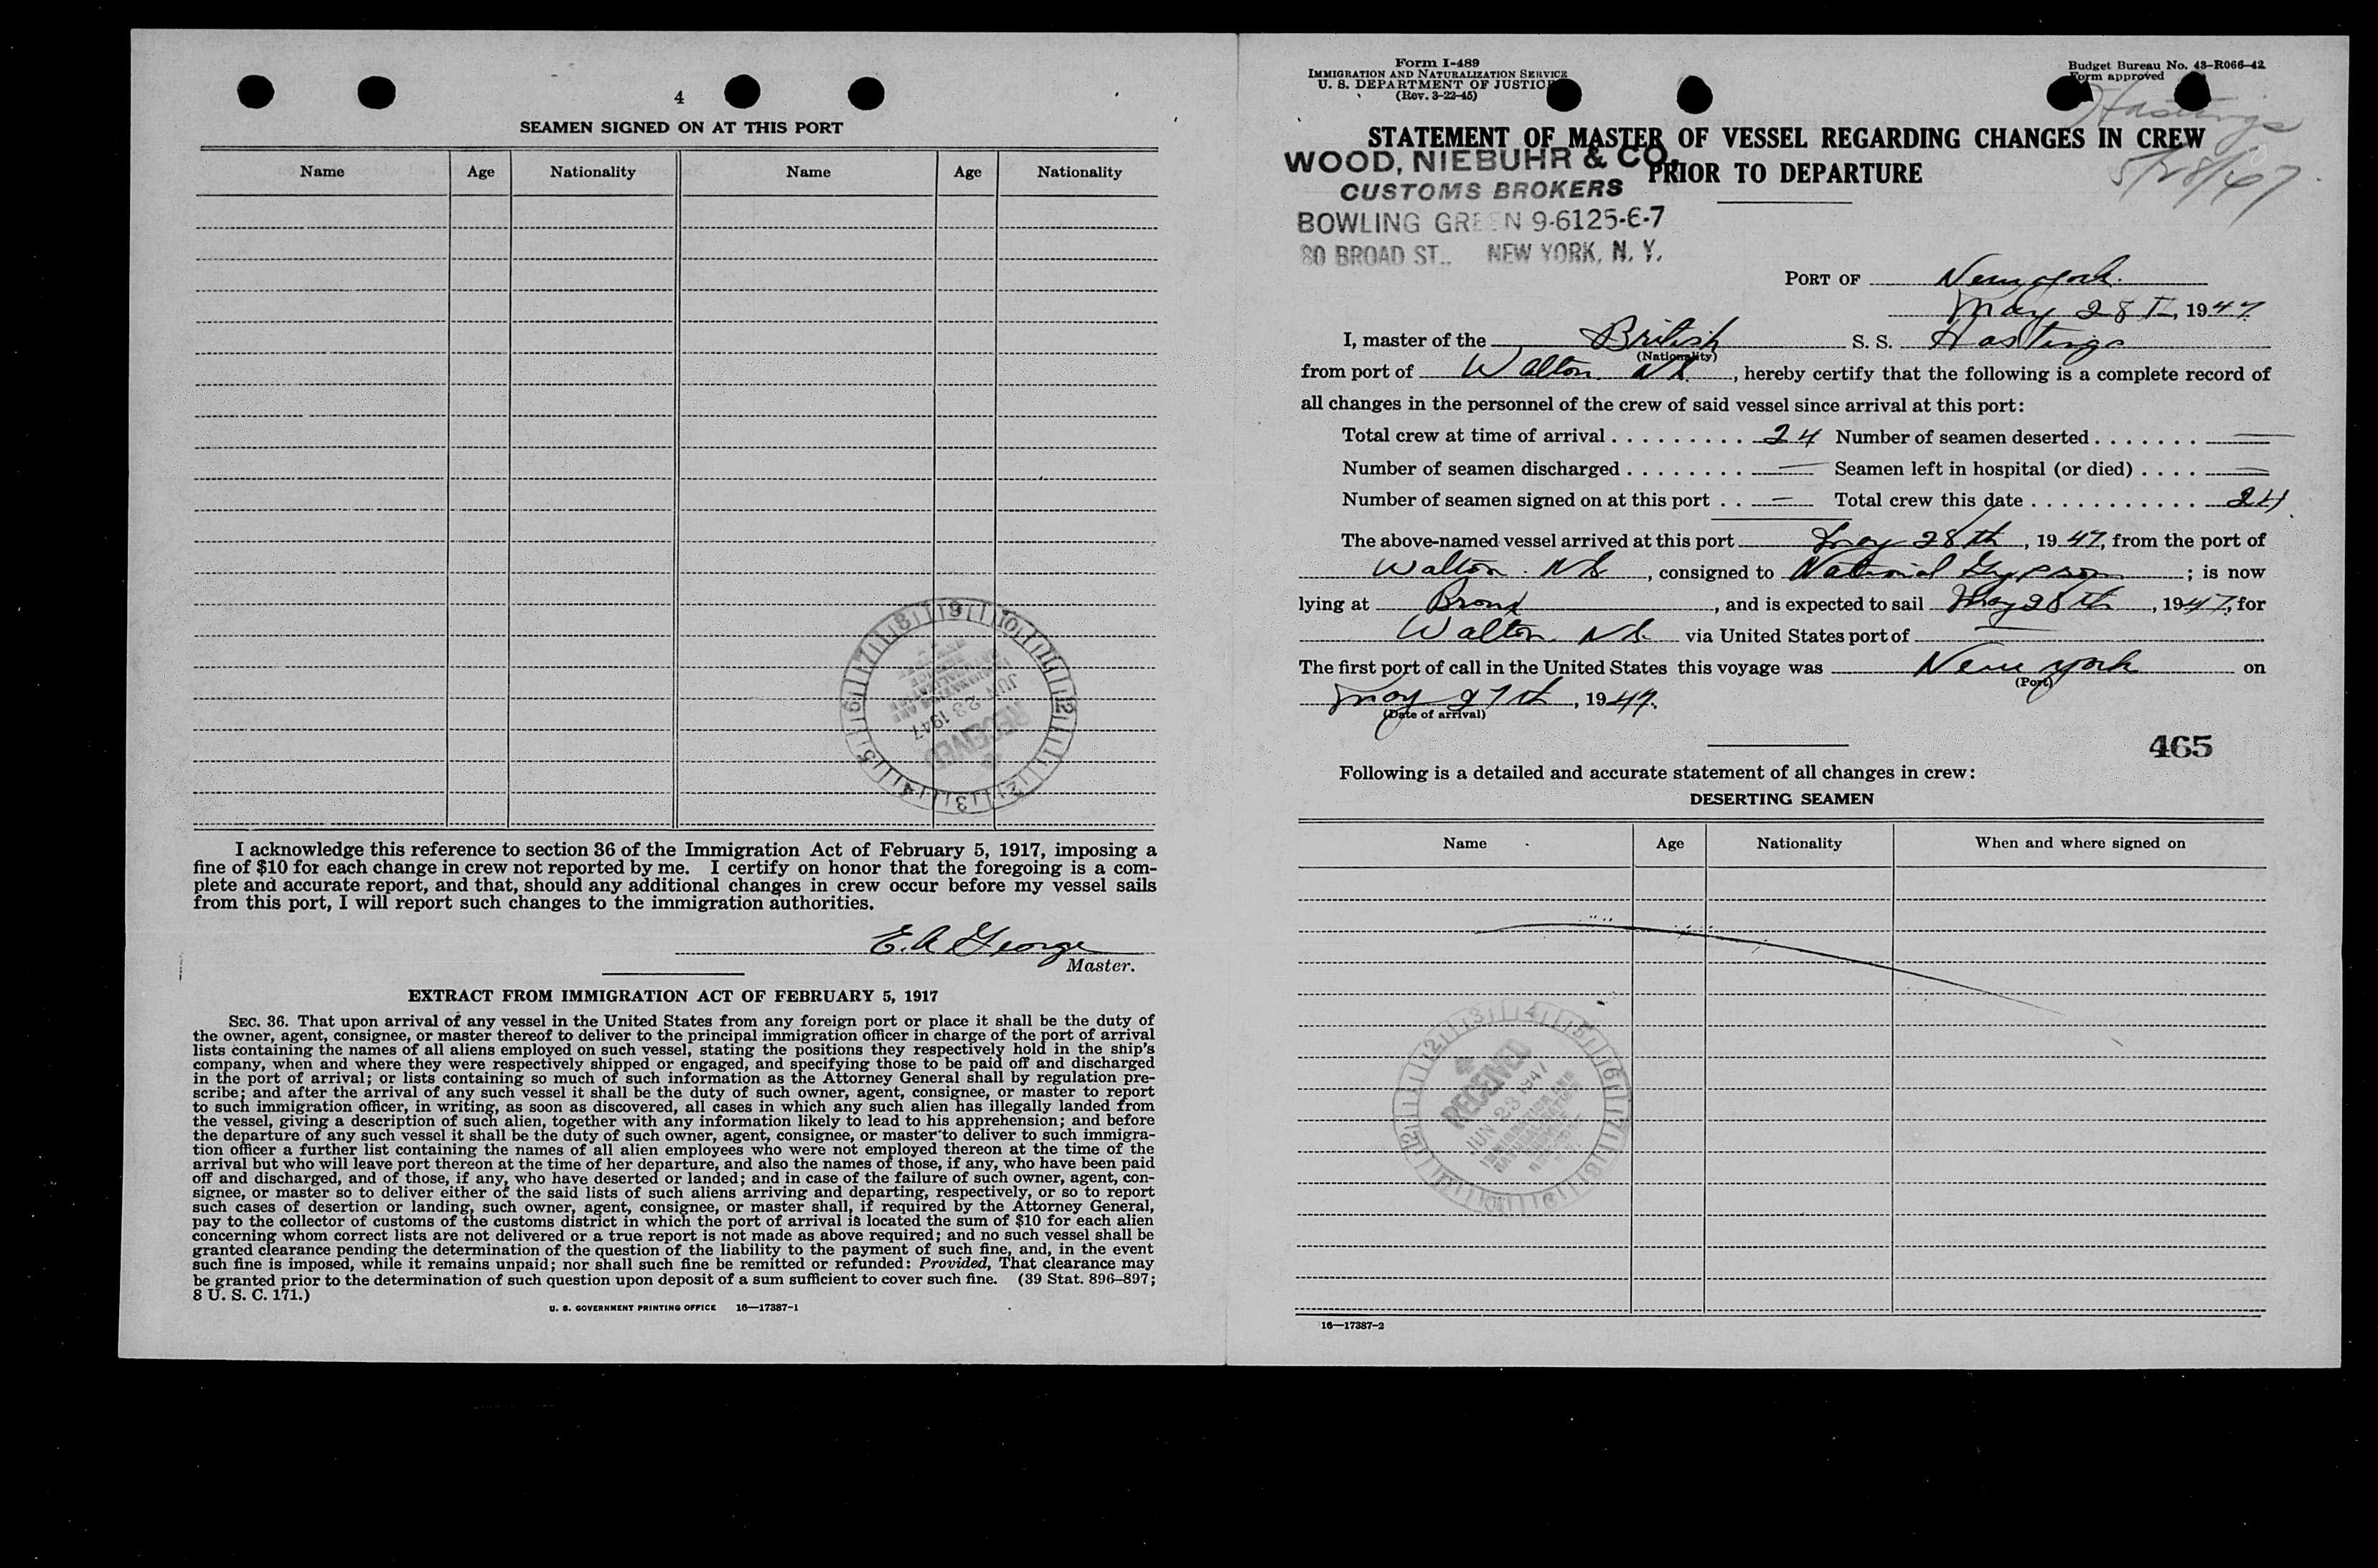 4
SEAMEN SIGNED ON AT THIS PORT
Name Age Nationality Name Age Nationality
9 10 11 12 1 2 3 4 5 6 7 8
RECEIVED
JUN 23 1947
I acknowledge this reference to section 36 of the Immigration Act of February 5, 1917, imposing a
fine of $10 for each change in crew not reported by me. I certify on honor that the foregoing is a com-
plete and accurate report, and that, should any additional changes in crew occur before my vessel sails
from this port, I will report such changes to the immigration authorities.
E. A George
Master.
EXTRACT FROM IMMIGRATION ACT OF FEBRUARY 5, 1917
SEC. 36. That upon arrival of any vessel in the United States from any foreign port or place it shall be the duty of
the owner, agent, consignee, or master thereof to deliver to the principal immigration officer in charge of the port of arrival
lists containing the names of all aliens employed on such vessel, stating the positions they respectively hold in the ship's
company, when and where they were respectively shipped or engaged, and specifying those to be paid off and discharged
in the port of arrival; or lists containing so much of such information as the Attorney General shall by regulation pre-
scribe; and after the arrival of any such vessel it shall be the duty of such owner, agent, consignee, or master to report
to such immigration officer, in writing, as soon as discovered, all cases in which any such alien has illegally landed from
the vessel, giving a description of such alien, together with any information likely to lead to his apprehension; and before
the departure of any such vessel it shall be the duty of such owner, agent, consignee, or master to deliver to such immigra-
tion officer a further list containing the names of all alien employees who were not employed thereon at the time of the
arrival but who will leave port thereon at the time of her departure, and also the names of those, if any, who have been paid
off and discharged, and of those, if any, who have deserted or landed; and in case of the failure of such owner, agent, con-
signee, or master so to deliver either of the said lists of such aliens arriving and departing, respectively, or so to report
such cases of desertion or landing, such owner, agent, consignee, or master shall, if required by the Attorney General,
pay to the collector of customs of the customs district in which the port of arrival is located the sum of $10 for each alien
concerning whom correct lists are not delivered or a true report is not made as above required; and no such vessel shall be
granted clearance pending the determination of the question of the liability to the payment of such fine, and, in the event
such fine is imposed, while it remains unpaid; nor shall such fine be remitted or refunded: Provided, That clearance may
be granted prior to the determination of such question upon deposit of a sum sufficient to cover such fine. (39 Stat. 896-897;
8 U. S. C. 171.)
U. S. GOVERNMENT PRINTING OFFICE 16—17387-1
Form I-489
IMMIGRATION AND NATURALIZATION SERVICE
U. S. DEPARTMENT OF JUSTICE
(Rev. 3-22-45)
Budget Bureau No. 43-R066-42
Form approved
Hastings
5/28/47
STATEMENT OF MASTER OF VESSEL REGARDING CHANGES IN CREW
PRIOR TO DEPARTURE
WOOD, NIEBUHR & CO.
CUSTOMS BROKERS
BOWLING GREEN 9-6125-6-7
80 BROAD ST., NEW YORK, N. Y.
PORT OF New York
May 28th, 1947
I, master of the British S. S. Hastings
(Nationality)
from port of Walton NS, hereby certify that the following is a complete record of
all changes in the personnel of the crew of said vessel since arrival at this port:
Total crew at time of arrival . . . . . . . . . 24 Number of seamen deserted . . . . . . . —
Number of seamen discharged . . . . . . . . — Seamen left in hospital (or died) . . . . —
Number of seamen signed on at this port . . — Total crew this date . . . . . . . . . . . 24
The above-named vessel arrived at this port May 28th, 1947, from the port of
Walton NS, consigned to National Gypsum; is now
lying at Bronx, and is expected to sail May 28th, 1947, for
Walton NS via United States port of —
The first port of call in the United States this voyage was New York on
(Port)
May 27th, 1947.
(Date of arrival)
465
Following is a detailed and accurate statement of all changes in crew:
DESERTING SEAMEN
Name Age Nationality When and where signed on
RECEIVED
JUN 23 1947
IMMIGRATION AND
NATURALIZATION
SERVICE
16—17387-2